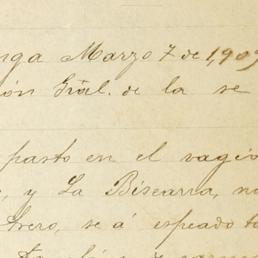 nga Marzo 7 de 1,909
ión Gral. de la se
pasto en el vagio
, y La Biscarra, no
rero, se á espeado to